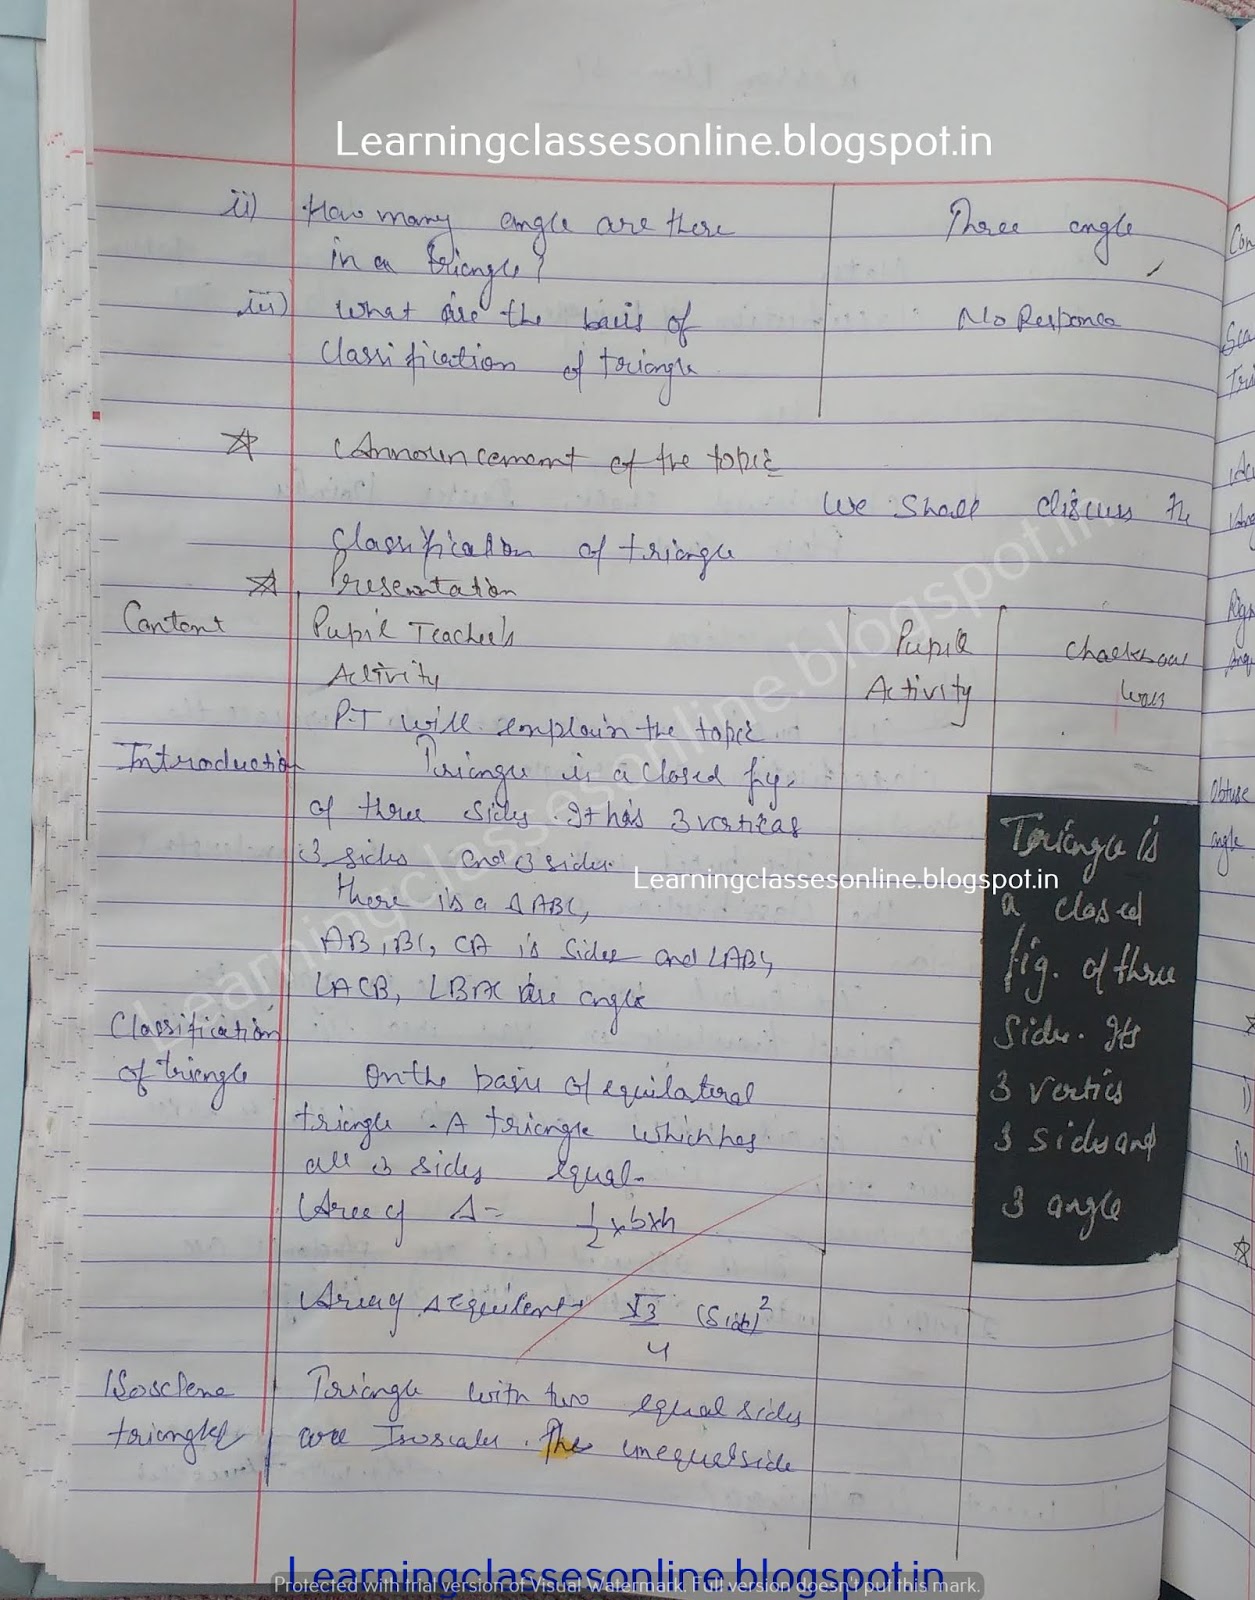 Learningclassesonline.blogspot.in
ii) How many angle are there Three angle
in a triangle?
iii) What are the basis of No Responce
Classification of triangle
Announcement of the topic
We Shall discuss the
Classification of triangle
Presentation
Content Pupil Teacher's Pupil Chalkboar
Activity Activity
P.T will explain the topic
Introduction Triangle is a closed fig.
of three sides. It has 3 vertices
3 sides and 3 sides.
Learningclassesonline.blogspot.in
there is a ΔABC,
AB, BC, CA is sides and LABC,
LACB, LBAC are angle
Classification
of triangle On the basis of equilateral
triangle. A triangle which has
all 3 sides equal.
Area of Δ = 1/2 x b x h
Area of Δ √3/4 (Side)²
triangle Triangle with two equal sides
are The unequal side
Triangle is
a closed
fig. of three
Side. Its
3 vertics
3 sides and
3 angle
Con
Obtuse
angle
Learningclassesonline.blogspot.in
Learningclassesonline.blogspot.in
Protected with trial version of Visual Watermark. Full version doesn't put this mark.